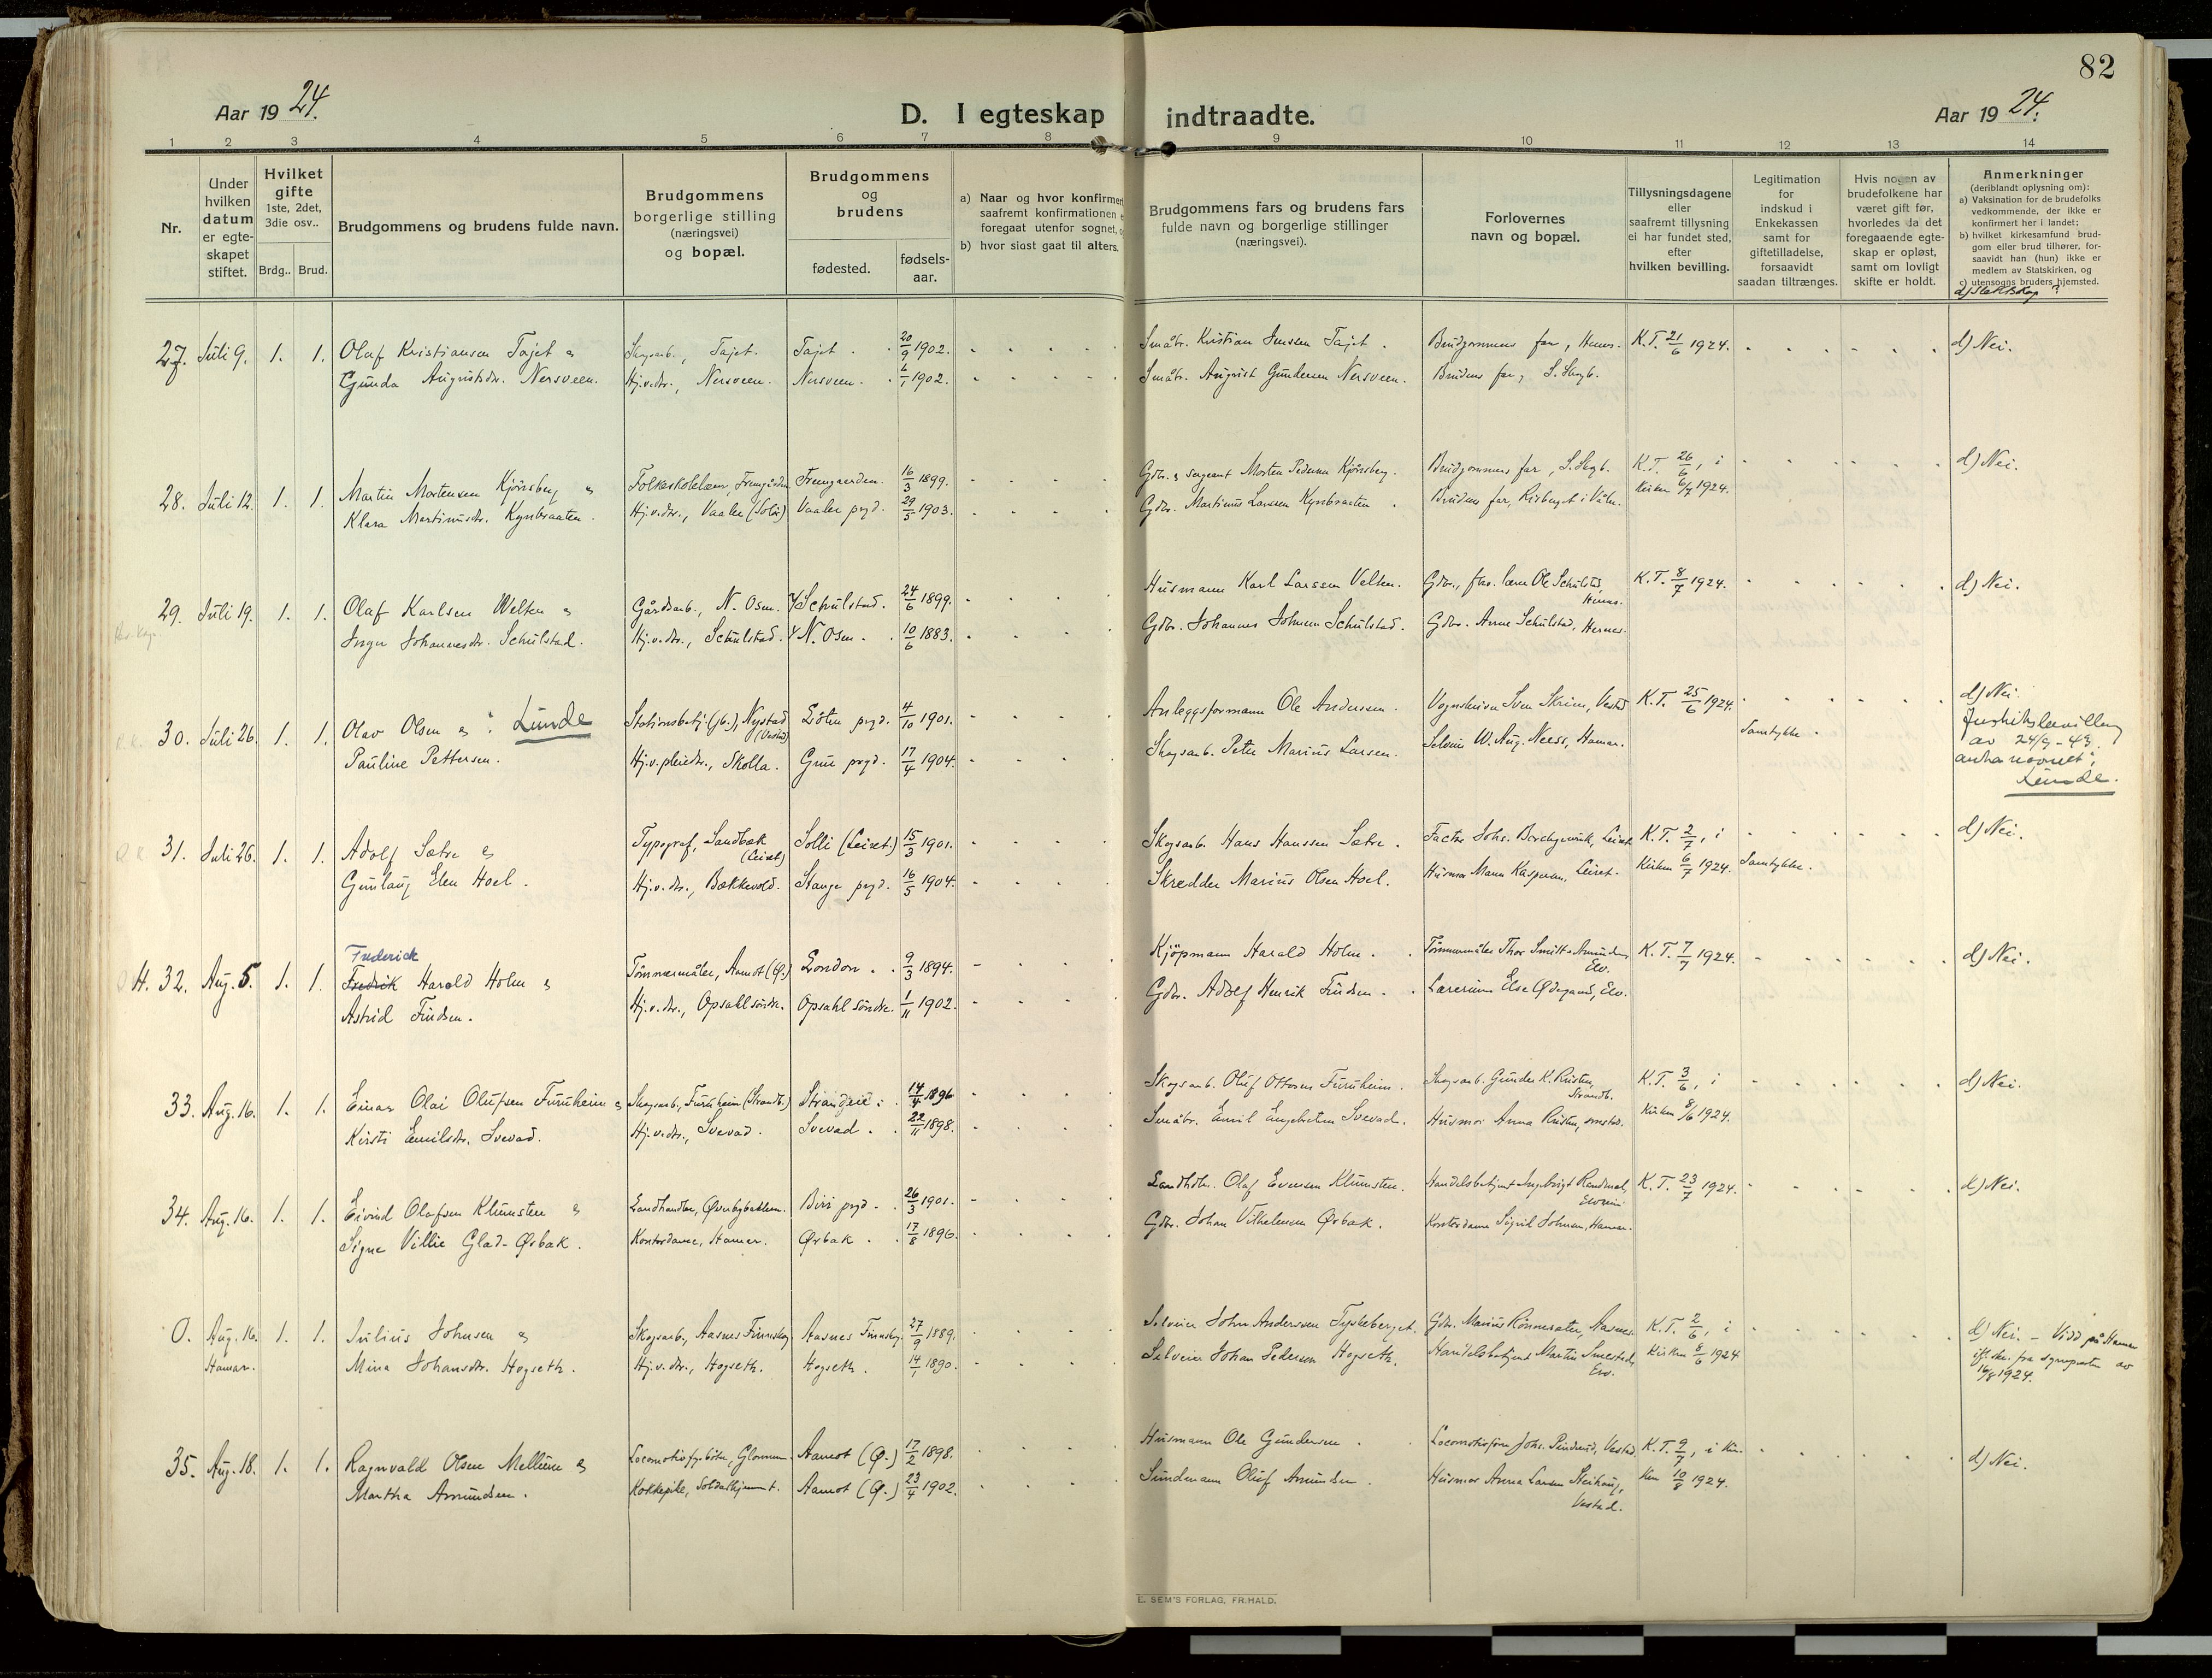 82
Aar 1924.
D. I egteskap indtraadte.
Aar 1924.
1 2 3 4 5 6 7 8 9 10 11 12 13 14
Nr.
Under
hvilken
datum
er egte-
skapet
stiftet.
Hvilket
gifte
1ste, 2det,
3die osv..
Brdg.. Brud.
Brudgommens og brudens fulde navn.
Brudgommens
borgerlige stilling
(næringsvei)
og bopæl.
Brudgommens
og
brudens
fødested.
fødsels-
aar.
a) Naar og hvor konfirmer
saafremt konfirmationen
foregaat utenfor sognet,
b) hvor sidst gaat til alters.
Brudgommens fars og brudens fars
fulde navn og borgerlige stillinger
(næringsvei).
Forlovernes
navn og bopæl.
Tillysningsdagene
eller
saafremt tillysning
ei har fundet sted,
efter
hvilken bevilling.
Legitimation
for
indskud i
Enkekassen
samt for
giftetilladelse,
forsaavidt
saadan tiltrænges.
Hvis nogen av
brudefolkene har
været gift før,
hvorledes da det
foregaaende egte-
skap er opløst,
samt om lovligt
skifte er holdt.
Anmerkninger
(deriblandt oplysning om):
a) Vaksination for de brudefolks
vedkommende, der ikke er
konfirmert her i landet;
b) hvilket kirkesamfund brud-
gom eller brud tilhører, for-
saavidt han (hun) ikke er
medlem av Statskirken, og
c) utensogns bruders hjemsted.
d) Slektskap?
27. Juli 9. 1. 1. Olaf Kristiansen Tajet & Skogsarb., Tajet. Tajet. 20/9 1902. Småbr. Kristian Jensen Tajet. Brudgommens far, Hernes. K.T. 21/6 1924. d) Nei.
Gunda Augustsdr. Nersveen. Hj.v.dr., Nersveen. Nersveen. 6/1 1902. Småbr. August Gundersen Nersveen. Brudens far, S. Skogb.
28. Juli 12. 1. 1. Martin Mortensen Kjønsberg & Folkeskolelærer, Fremgården Fremgaarden. 16/3 1899. Gdbr. & sergeant Morten Pedersen Kjønsberg. Brudgommens far, S. Skogb. K.T. 26/6, i d) Nei.
Klara Martinusdr. Kynbraaten. Hj.v.dr., Vaaler (Solør) Vaaler prgd. 29/5 1903. Gdbr. Martinus Larsen Kynbraaten. Brudens far, Risberget i Våler. Kirken 6/7 1924.
29. Juli 19. 1. 1. Olaf Karlsen Welten & Gårdsarb., N. Osen. Schulstad. 24/6 1899. Husmann Karl Larssen Velten. Gdbr., Ole Schulstad, Hernes. K.T. 8/7 1924. d) Nei.
Inger Johannesdr. Schulstad. Hj.v.dr., Schulstad. N. Osen. 10/6 1883. Gdbr. Johannes Johnsen Schulstad. Gdbr. Arne Schulstad, Hernes.
30. Juli 26. 1. 1. Olav Olsen & : Lunde Stationsbetj. (jb.), Nystad (Vestad) Løten prgd. 4/10 1901. Anleggsformann Ole Andersen. Vognskriver Sven Skrim, Vestad K.T. 25/6 1924. d) Nei.
Pauline Pettersen. Hj.v. pleiedtr., Skolla. Grue prgd. 17/4 1904. Skogsarb. Peter Marius Larsen. Selveier W. Aug. Neess, Hamar. Samtykke.
Justitsbevilling
av 24/9-43.
anta navnet:
Lunde.
31. Juli 26. 1. 1. Adolf Sætre & Typograf, Sandbæk (Leiret) Solli (Leiret.) 15/3 1901. Skogsarb. Hans Hanssen Sætre. Factor Johs. Borchgrevink, Leiret K.T. 2/7, i d) Nei.
Gunlaug Elen Hoel. Hj.v.dr., Bækkevold. Stange prgd. 16/5 1904. Skredder Marius Olsen Hoel. Husmor Maren Kaspersen, Leiret. Kirken 6/7 1924. Samtykke.
Frederick
H. 32. Aug. 5. 1. 1. Fredrik Harald Holm & Tømmermåler, Aamot (Ø.) London. 9/3 1894. Kjøpmann Harald Holm. Tømmermåler Thor Smitt-Amundsen Elv. K.T. 7/7 1924. d) Nei.
Astrid Findsen. Hj.v.dr., Opsahl søndre. Opsahl søndre. 1/11 1902. Gdbr. Adolf Henrik Findsen. Lærerinne Else Ødegaard, Elv.
33. Aug. 16. 1. 1. Einar Olai Olufsen Furuheim & Skogsarb., Furuheim (Strandb.) Strandeie. 14/4 1896 Skogsarb. Oluf Ottosen Furuheim. Skogsarb. Gunder K. Rusten, Strandb. K.T. 3/6, i d) Nei.
Kirsti Emilsdr. Svevad. Hj.v.dtr., Svevad. Svevad. 22/11 1898. Småbr. Emil Engebretsen Svevad. Husmor Anna Rusten, smstd. Kirken 8/6 1924.
34. Aug. 16. 1. 1. Eivind Olafsen Klunsten & Landhandler, Øverbybakken. Biri prgd. 26/3 1901. Landhdlr. Olaf Evensen Klunsten. Handelsbetjent Ingebrigt Randmæl, Elverum K.T. 23/7 1924. d) Nei.
Signe Villie Glad-Ørbak. Kontordame, Hamar. Ørbak. 17/8 1896. Gdbr. Johan Vilhelmsen Ørbak. Kontordame Sigrid Johnsen, Hamar.
0. Aug. 16. 1. 1. Julius Johnsen & Skogsarb., Aasnes Finnskog. Aasnes Finnskog. 27/9 1889. Selveier John Andersen Tyskeberget. Gdbr. Marius Rønnesæter, Aasnes. K.T. 2/6, i d) Nei. – Viet på Hamar
Hamar. Mina Johansdr. Hogseth. Hj.v.dr., Hogseth. Hogseth. 14/1 1890. Selveier Johan Pedersen Hogseth. Handelsbetjent Martin Smestad, Elv. Kirken 8/6 1924 ifl. skr. fra sognepresten av 16/8 1924.
35. Aug. 18. 1. 1. Ragnvald Olsen Mellum & Locomotivfyrbøter, Glommen. Aamot (Ø.) 17/2 1898. Husmann Ole Gundersen. Locomotivfører Johs. Pindsrud, Vestad. K.T. 9/7, i Kir- d) Nei.
Martha Amundsen. Kokkepike, Soldathjemmet. Aamot (Ø.) 23/4 1902. Sundmann Oluf Amundsen. Husmor Anna Larsen Steihaug, Vestad. ken 10/8 1924.
E. SEM'S FORLAG, FR.HALD.